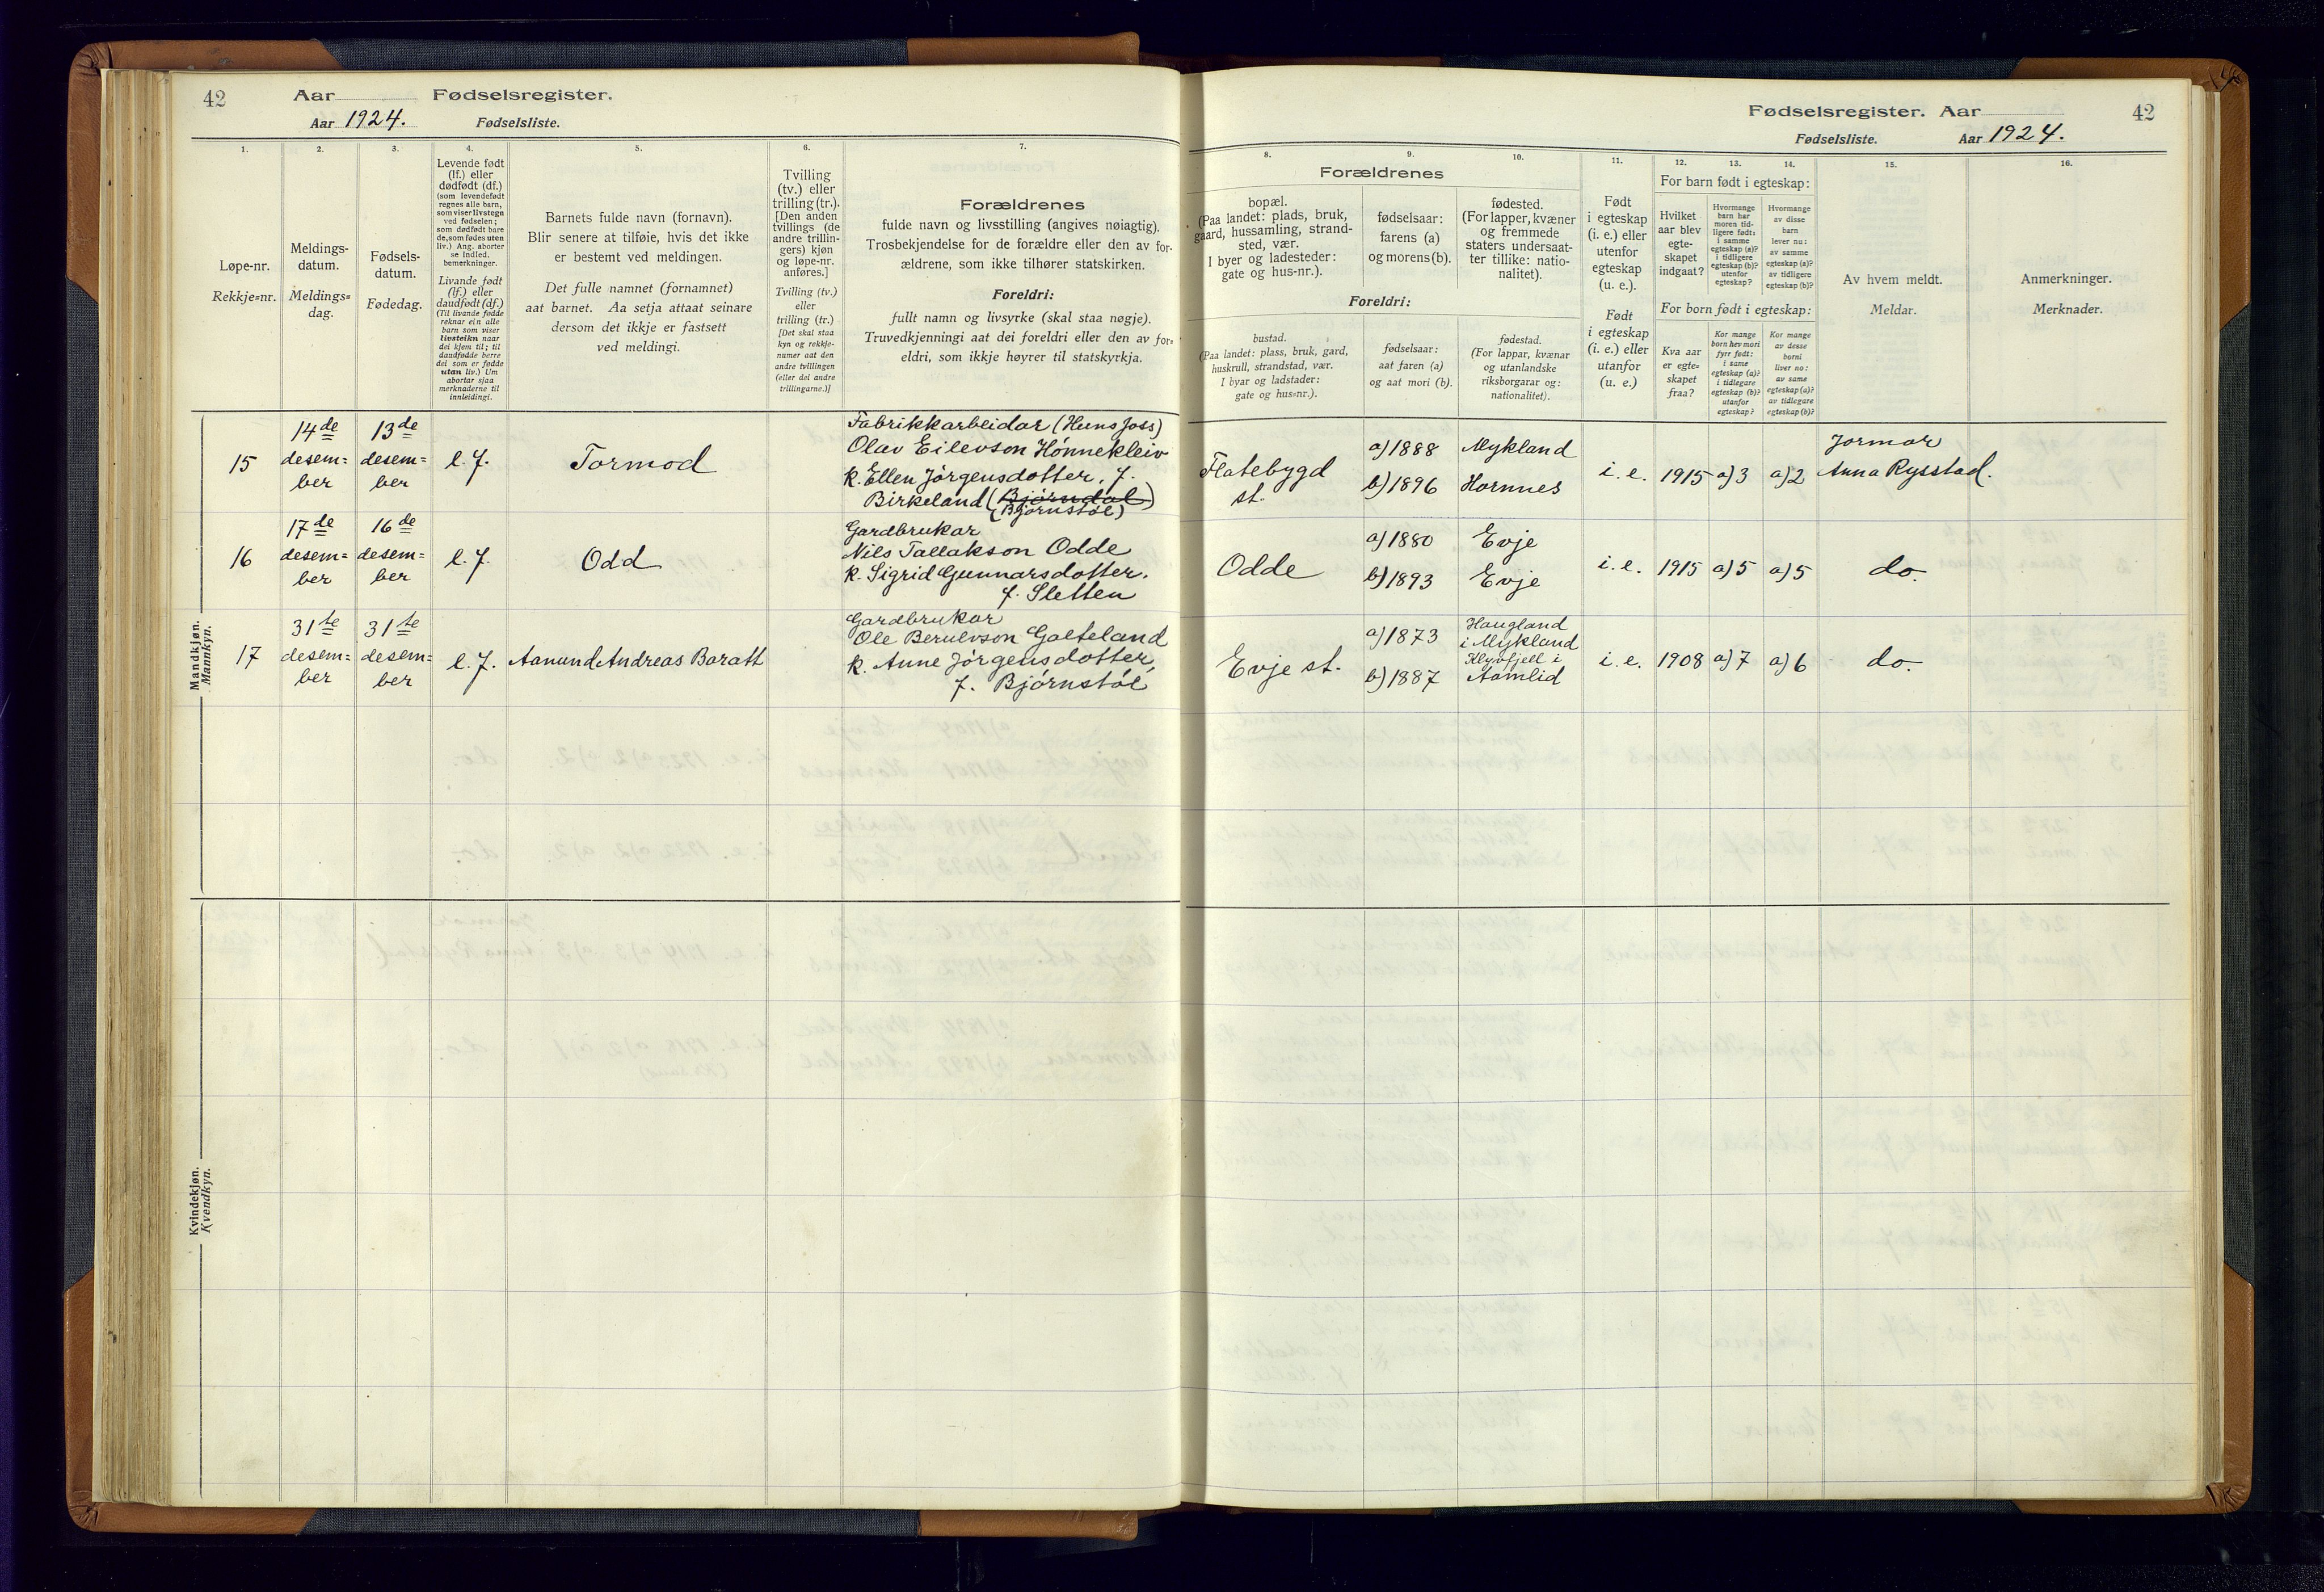 42 Aar Fødselsregister.
Aar 1924. Fødselsliste.
1.
2.
3.
4.
5.
6.
7.
Løpe-nr.
Rekkje=nr.
Meldings-
datum.
Meldings=
dag.
Fødsels-
datum.
Fødedag.
Levende født
(lf.) eller
dødfødt (df.)
(som levendefødt
regnes alle barn,
som viser livstegn
ved fødselen;
som dødfødt bare
de, som fødes uten
liv.) Ang. aborter
se indled.
bemerkninger.
Livande født
(lf.) eller
daudfødt (df.)
(Til livande fødde
reknar ein alle
barn som viser
livsteikn naar
dei kjem til; til
daudfødde berre
dei som er fødde
utan liv.) Um
abortar sjaa
merknaderne til
innleidingi.
Barnets fulde navn (fornavn).
Blir senere at tilføie, hvis det ikke
er bestemt ved meldingen.
Det fulle namnet (fornamnet)
aat barnet. Aa setja attaat seinare
dersom det ikkje er fastsett
ved meldingi.
Tvilling
(tv.) eller
trilling (tr.).
[Den anden
tvillings (de
andre trillin-
gers) kjøn
og løpe-nr.
anføres.]
Tvilling (tv.)
eller
trilling (tr.)
[Det skal staa
kyn og rekkje-
numer aat den
andre tvillingen
(eller dei andre
trillingarne.)]
Forældrenes
fulde navn og livsstilling (angives nøiagtig).
Trosbekjendelse for de forældre eller den av for-
ældrene, som ikke tilhører statskirken.
Foreldri:
fullt namn og livsyrke (skal staa nøgje).
Truvedkjenningi aat dei foreldri eller den av for=
eldri, som ikkje høyrer til statskyrkja.
Mandkjøn.
Mannkyn.
15
14de
desem=
ber
13de
desem=
ber
l. f.
Tormod
Fabrikkarbeidar (Hunsfoss)
Olav Eilevson Hønnekleiv
k. Ellen Jørgensdotter, f.
Birkeland (Bjørndal)
(Bjørnstøl)
16
17de
desem=
ber
16de
desem=
ber
l. f.
Odd
Gardbrukar
Nils Tallakson Odde
k. Sigrid Gunnarsdotter.
f. Sletten
17
31te
desem=
ber
31te
desem=
ber
l. f.
Aanund Andreas Baratt
Gardbrukar
Ole Berulvson Gaaseland
k. Anne Jørgensdotter,
f. Bjørnstøl
Kvindekjøn.
Kvendkyn.
Fødselsregister. Aar 42
Fødselsliste. Aar 1924.
8.
9.
10.
11.
12.
13.
14.
15.
16.
Forældrenes
bopæl.
(Paa landet: plads, bruk,
gaard, hussamling, strand-
sted, vær.
I byer og ladesteder:
gate og hus-nr.).
fødselsaar:
farens (a)
og morens (b).
fødested.
(For lapper, kvæner
og fremmede
staters undersaat-
ter tillike: natio-
nalitet).
Foreldri:
bustad.
(Paa landet: plass, bruk, gard,
huskrull, strandstad, vær.
I byar og ladstader:
gate og hus=nr.).
fødselsaar:
aat faren (a)
og aat mori (b).
fødestad.
(For lappar, kvænar
og utanlandske
riksborgarar og:
nationalitet).
Født
i egteskap
(i. e.) eller
utenfor
egteskap
(u. e.).
Født
i egteskap
(i. e.) eller
utanfor
(u. e.)
For barn født i egteskap:
Hvilket
aar blev
egte-
skapet
indgaat?
Hvormange
barn har
moren tid-
ligere født:
i samme
egteskap (a)?
i tidligere
egteskap (b)?
utenfor
egteskap?
Hvormange
av disse
barn
lever nu:
av samme
egteskap (a)?
av tidligere
egteskap (b)?
For born født i egteskap:
Kva aar
er egte=
skapet
fraa?
Kor mange
born hev mori
fyrr født:
i same
egteskap (a)?
i tidlegare
egteskap (b)?
utanfor
egteskap?
Kor mange
av desse
borni
liver no:
av same
egteskap (a)?
av tidlegare
egteskap (b)?
Av hvem meldt.
Meldar.
Anmerkninger.
Merknader.
Flatebygd
st.
a) 1888
b) 1896
Mykland
Hornnes
i. e.
1915
a) 3
a) 2
Jormor
Anna Rysstad.
Odde
a) 1880
b) 1893
Evje
Evje
i. e.
1915
a) 5
a) 5
do.
Evje st.
a) 1873
b) 1887
Haugland
i Mykland
Klyvfjell i
Aamlid
i. e.
1908
a) 7
a) 6
do.